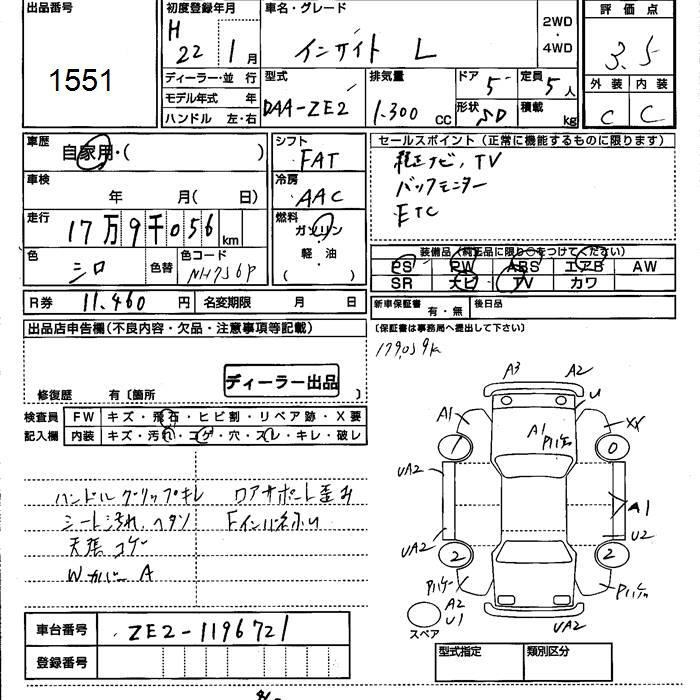 出品番号
1551
初度登録年月
H 22 1月
車名・グレード
インサイト L
2WD
4WD
評価点
3.5
外装 内装
C C
ディーラー・並行
モデル年式 年
ハンドル 左・右
型式
DAA-ZE2
排気量
1.300 CC
ドア 5
形状 SD
定員 5人
積載 kg
車歴
自家用・( )
車検
年 月(日)
走行
17万9千056km
色
シロ
色替
色コード
NH756P
シフト
FAT
冷房
AAC
燃料
ガソリン
軽・油
( )
セールスポイント(正常に機能するものに限ります)
純正ナビ,TV
バックモニター
ETC
装備品(純正品に限り○をつけてください)
PS PW ABS エアB AW
SR ナビ TV カワ
R券 11.460円 名変期限 月 日
新車保証書 有・無
後日品
(保証書は事務局へ提出して下さい)
出品店申告欄(不良内容・欠品・注意事項等記載)
ディーラー出品
修復歴 有〔箇所 〕
検査員
記入欄
FW キズ・飛石・ヒビ割・リペア跡・X要
内装 キズ・汚れ・コゲ・穴・スレ・キレ・破レ
ハンドルグリップキレ
シート汚れ,ヘタリ
天張コゲ
Wカバー A
ロアサポート歪み
A3 A2
U
A1
XX
A1
1 0
UA2
A1
U2
UA2
2 2
A2
U1
UA2
スペア
車台番号 ZE2-1196721
登録番号
型式指定 類別区分